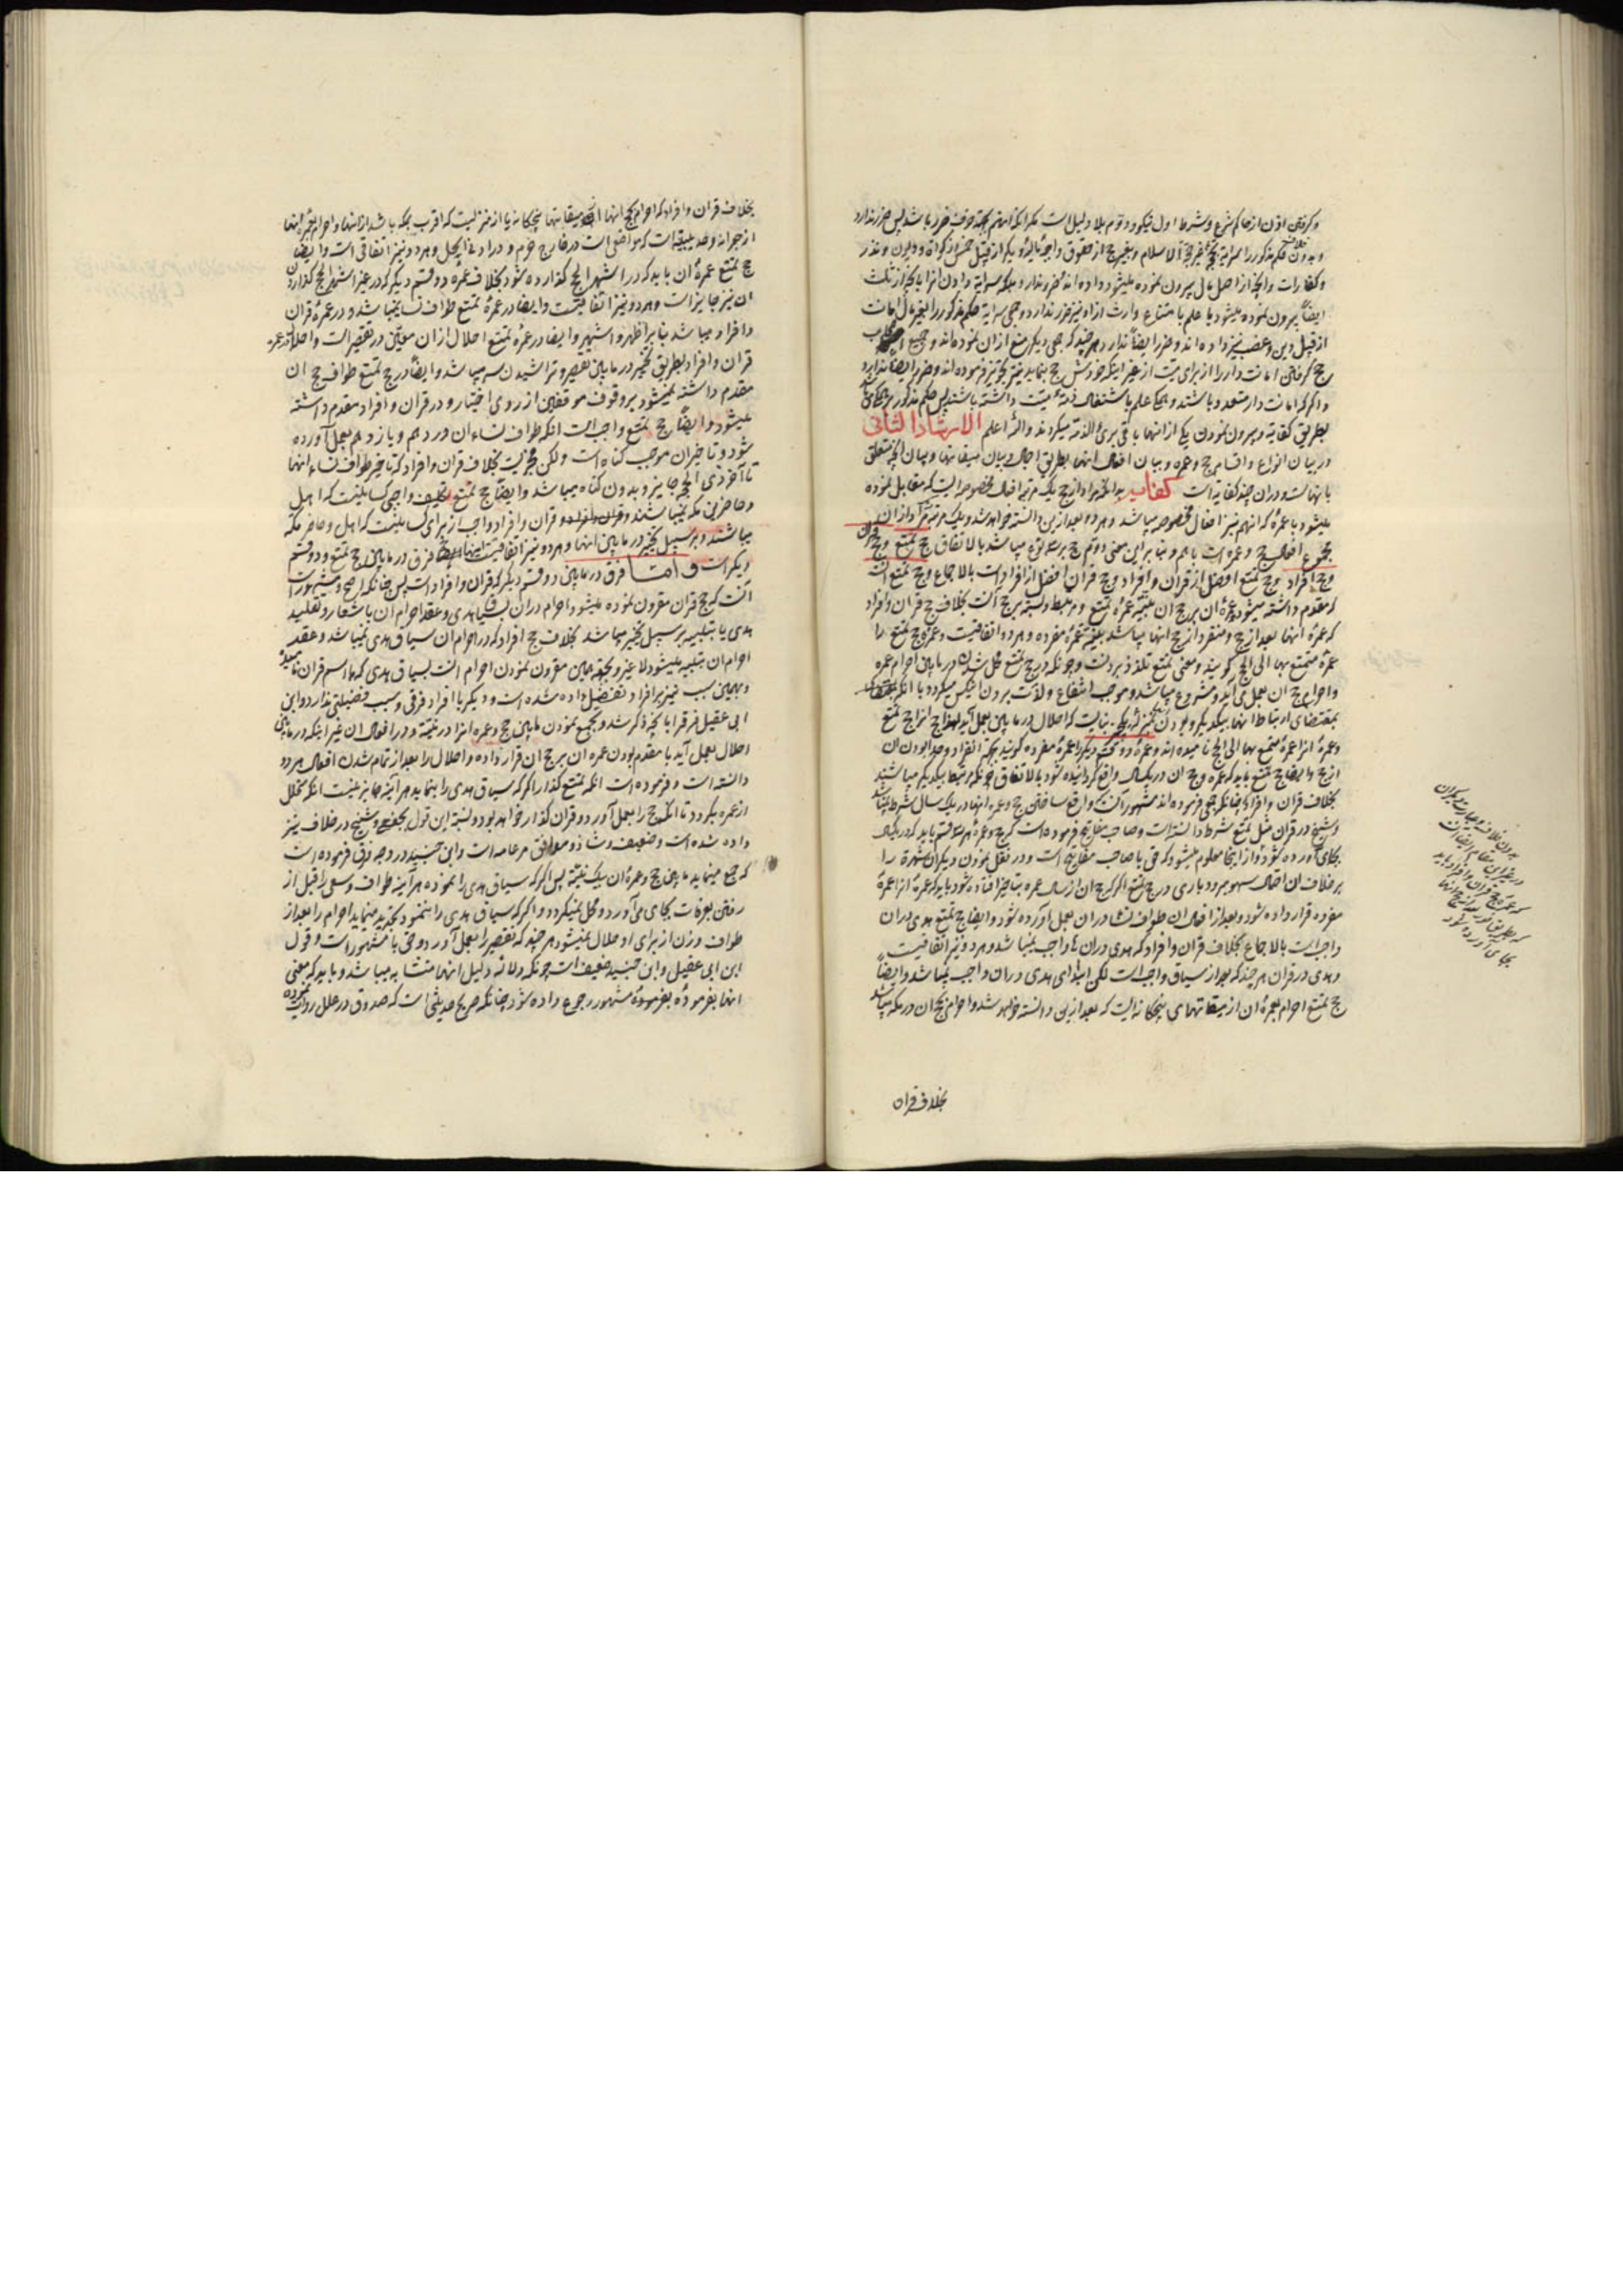 و کرفتن اذن از حاکم شرع و شرط اول نیکو و دوم بلا دلیل است
و بدون حکم مذکور را بغیر حج از حقوق واجبهٔ مالیه دیگر از قبیل خمس و زکوة و دیون و نذر
و کفارات و انچه از اصل مال بیرون نموده میشود داده اند ضرر ندارد بلکه سرایة دادن انرا بانچه از ثلث
ایضاً بیرون نموده میشود با علم بامتناع وارث از اداء نیز ضرر ندارد و سرایة حکم مذکور را بغیر مال امانت
از قبیل دین و غصب نیز داده اند و ضرر ایضاً ندارد هر چند که جمعی دیگر منع از ان نموده اند و جمیع
حج کرفتن امانت دار را از برای میت از غیر اینکه خودش حج بنماید نیز تجویز فرموده اند و ضرر ایضاً ندارد
و اگر که امانت دار متعدد باشند و همگی علم باشتغال ذمهٔ میت داشته باشند پس حکم مذکور بر همگی
بطریق کفایة و بیرون نمودن یکی از انها باقی بریٔ الذمة میکردند والله اعلم الارشاد الثانی
در بیان انواع و اقسام حج و عمره و بیان افعال انها بطریق اجمال و بیان میقاتها و بیان انچه متعلق
بانهاست و دران چند کفایة است کفایة بدانکه مراد از حج یک مرتبه افعال مخصوصه ایست که مقابل نموده
میشود با عمره که انهم نیز افعال مخصوصه میباشد و هر دو بعد ازین دانسته خواهد شد و یک مرتبه مراد از ان
مجموع افعال حج و عمره است با هم و بنا بر این معنی دویم حج بر سه نوع میباشد بالاتفاق حج تمتع و حج قران
و حج افراد و حج تمتع افضل از قران و افراد و حج قران افضل از افراد است بالاجماع و حج تمتع انست
که مقدم داشته میشود عمرهٔ ان بر حج ان بنیة عمرهٔ تمتع و مرتبط و بسته بر حج انست بخلاف حج قران و افراد
که عمرهٔ انها بعد از حج و منفرد از حج انها میباشد بنیة عمرهٔ مفرده و هر دو اتفاقیست و عمرهٔ حج تمتع را
عمرهٔ متمتع بها الی الحج کویند و معنی تمتع تلذذ بردنست و چونکه در حج تمتع محل شدن در مابین احرام عمره
و احرام حج ان بعمل می آید و مشروع میباشد و موجب انتفاع و لذت بردن میکردد با انکه
بمقتضای ارتباط انها بیکدیگر و بودن بمنزلهٔ یک که احلال در مابین بعمل آید لهذا حج انرا حج تمتع
و عمرهٔ انرا عمرهٔ متمتع بها الی الحج نامیده اند و عمرهٔ دو قسم دیگر را عمرهٔ مفرده کویند بجهة انفراد و جدا بودن ان
از حج و ایضاً حج تمتع باید که عمره و حج ان در یکسال واقع کردانیده شود بالاتفاق چونکه مرتبط بیکدیگر میباشند
بخلاف قران و افراد چنانکه جمعی فرموده اند و مشهور انست که واقع ساختن حج و عمره انها در یک سال شرط نمیباشد
و شیخ در قران مثل تمتع شرط دانسته است و صاحب مفاتیح فرموده است که حج و عمرهٔ هر سه قسم باید که در یکسال
بجای آورده شود و از اینجا معلوم میشود که فی با صاحب مفاتیح است و در نقل نمودن دیگران شهرة را
بر خلاف ان احتمال سهو میرود باری در حج تمتع اگر که حج ان از سال عمره بتأخیر افتاده شود باید که عمرهٔ انرا عمرهٔ
مفرده قرار داده شود و بعد از افعال ان طواف نساء دران بعمل آورده شود و ایضاً حج تمتع هدی دران
واجب است بالاجماع بخلاف قران و افراد که هدی دران ها واجب نمیباشد و هر دو نیز اتفاقیست
و هدی در قران هر چند که بعد از سیاق واجب است لکن ابتدای هدی دران واجب نمیباشد و ایضاً
حج تمتع احرام بعمرهٔ ان از میقاتهای پنجکانه ایست که بعد ازین دانسته خواهد شد و احرام بحج ان در مکه میباشد
بخلاف قران
بدون
در غیر ان مقام
که عمره حج قران و افراد باید
که بطریق بعد از حج انها
بجای آورده شود
بخلاف قران و افراد که احرام بحج انها از میقاتها پنجکانه یا از منزلیست که اقرب بمکه باشد از انها و احرام بعمرهٔ انها
از جعرانه و حدیبیه است که مواضعی است در خارج حرم و در ادنی الحل و هر دو نیز اتفاقی است و ایضاً
حج تمتع عمرهٔ ان باید که در اشهر الحج کذارده شود بخلاف عمرهٔ دو قسم دیگر که در غیر اشهر الحج کذاردن
ان نیز جایز است و هر دو نیز اتفاقیست و ایضاً در عمرهٔ تمتع طواف نساء نمیباشد و در عمرهٔ قران
و افراد میباشد بنا بر اظهر و اشهر و ایضاً در عمرهٔ تمتع احلال از ان معین در تقصیر است و احلال در عمره
قران و افراد بطریق تخییر در مابین تقصیر و تراشیدن سر میباشد و ایضاً در حج تمتع طواف حج ان
مقدم داشته نمیشود بر وقوف موقفین از روی اختیار و در قران و افراد مقدم داشته
میشود و ایضاً حج تمتع واجب است انکه طواف نساء ان در دهم و یازدهم بعمل آورده
شود و تاخیر ان موجب کناه است ولکن مجزیست بخلاف قران و افراد که تاخیر طواف نساء انها
تا آخر ذی الحجه جایز و بدون کناه میباشد و ایضاً حج تمتع تکلیف واجبی کسانیست که اهل
و حاضرین مکه نمیباشند و قران و افراد واجب از برای کسانیست که اهل و حاضر مکه
میباشند و بر سبیل تخییر در مابین انها و هر دو نیز اتفاقیست فرق در مابین حج تمتع و دو قسم
دیگر است و امّا فرق در مابین دو قسم دیگر که قران و افراد است پس چنانکه اصح و مشهور است
آنست که حج قران مقرون نموده میشود احرام دران بسیاق هدی و عقد احرام ان باشعار و تقلید
هدی یا بتلبیه بر سبیل تخییر میباشد بخلاف حج افراد که در احرام ان سیاق هدی نمیباشد و عقد
احرام ان بتلبیه میشود لا غیر و بجهة همین مقرون نمودن احرام انست بسیاق هدی که انرا اسم قران نامیده
و بهمین سبب نیز بر افراد تفضیل داده شده است و دیگر با افراد فرقی و سبب فضیلتی ندارد و ابن
ابی عقیل فرق را بانچه ذکر شد و بجمع نمودن مابین حج و عمره انرا در نیة و در افعال ان غیر اینکه در مابین
احلال بعمل آید با مقدم بودن عمره ان بر حج ان قرار داده و احلال را بعد از تمام شدن افعال هر دو
دانسته است و فرموده است انکه تمتع کذار اگر که سیاق هدی را بنماید هر آینه جایز نیست انکه محلل
از عمره بکردد تا انکه حج را بعمل آورد و قران کذار خواهد بود و نسبة این قول بجعفی و شیخ در خلاف نیز
داده شده است و ضعیف و شاذ و موافق مر عامه است و ابن جنید در وجه فرق فرموده است
که جمع مینماید مابین حج و عمرهٔ ان بیک نیة پس اگر که سیاق هدی را نموده هر آینه طواف و سعی را قبل از
رفتن بعرفات بجای می آورد و محل نمیکردد و اگر که سیاق هدی را ننمود تجدید مینماید احرام را بعد از
طواف و زن از برای او حلال نمیشود هر چند که تقصیر را بعمل آورد و حق با مشهور است و قول
ابن ابی عقیل و ابن جنید ضعیف است چونکه دلالة دلیل انها متشابه میباشد و باید که معنی
انها بفرمودهٔ مشهور رجوع داده شود چنانکه صریح حدیثی است که صدوق در علل روایت نموده